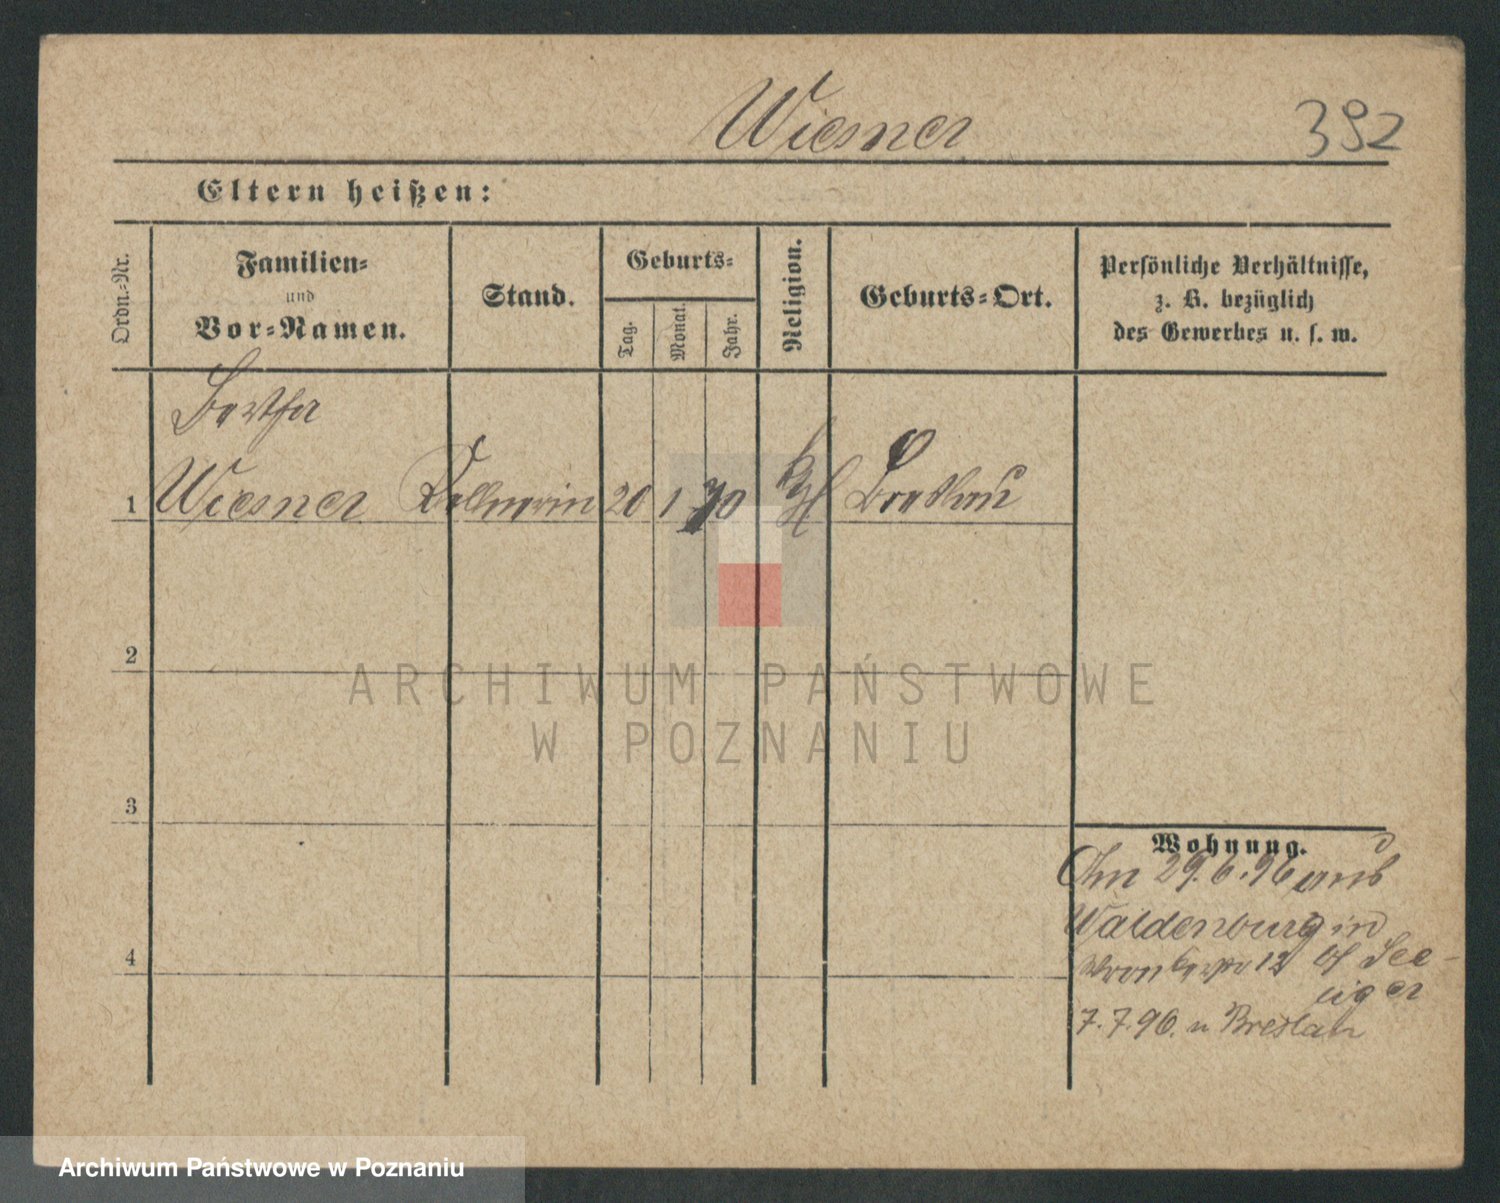 Wiesner 392
Eltern heißen:
Ordn.-Nr.
Familien-
und
Vor-Namen.
Stand.
Geburts-
Tag.
Monat.
Jahr.
Religion.
Geburts-Ort.
Persönliche Verhältnisse,
z. B. bezüglich
des Gewerbes u. s. w.
Bertha
1 Wiesner Kellnerin 20 1 70 Breslau
2
3
4
Wohnung.
Am 29.6.96 aus
Waldenburg in
12 bei See-
liger
7.7.96. n Breslau
ARCHIWUM PAŃSTWOWE
W POZNANIU
Archiwum Państwowe w Poznaniu